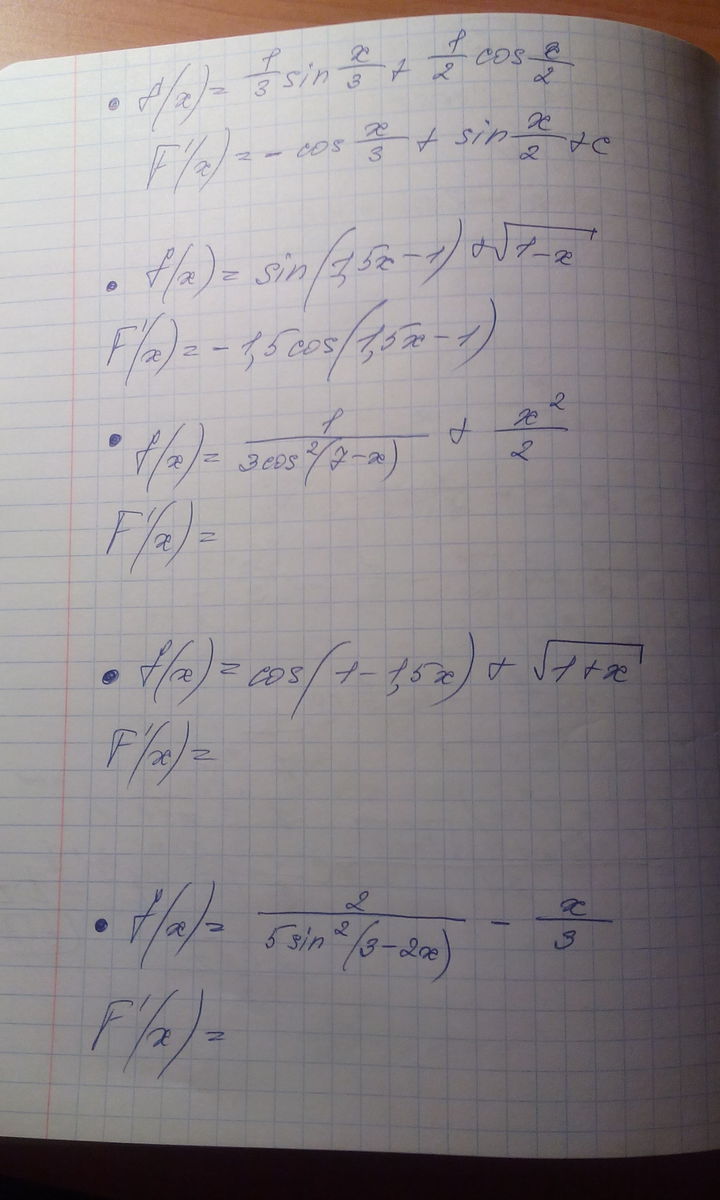 • f(x) = 1/3 sin x/3 + 1/2 cos x/2
F'(x) = - cos x/3 + sin x/2 + c
• f(x) = sin(1,5x-1) + √1-x
F'(x) = -1,5cos(1,5x-1)
• f(x) = 1/3cos²(7-x) + x²/2
F'(x) =
• f(x) = cos(1-1,5x) + √1+x
F'(x) =
• f(x) = 2/5sin²(3-2x) - x/3
F'(x) =